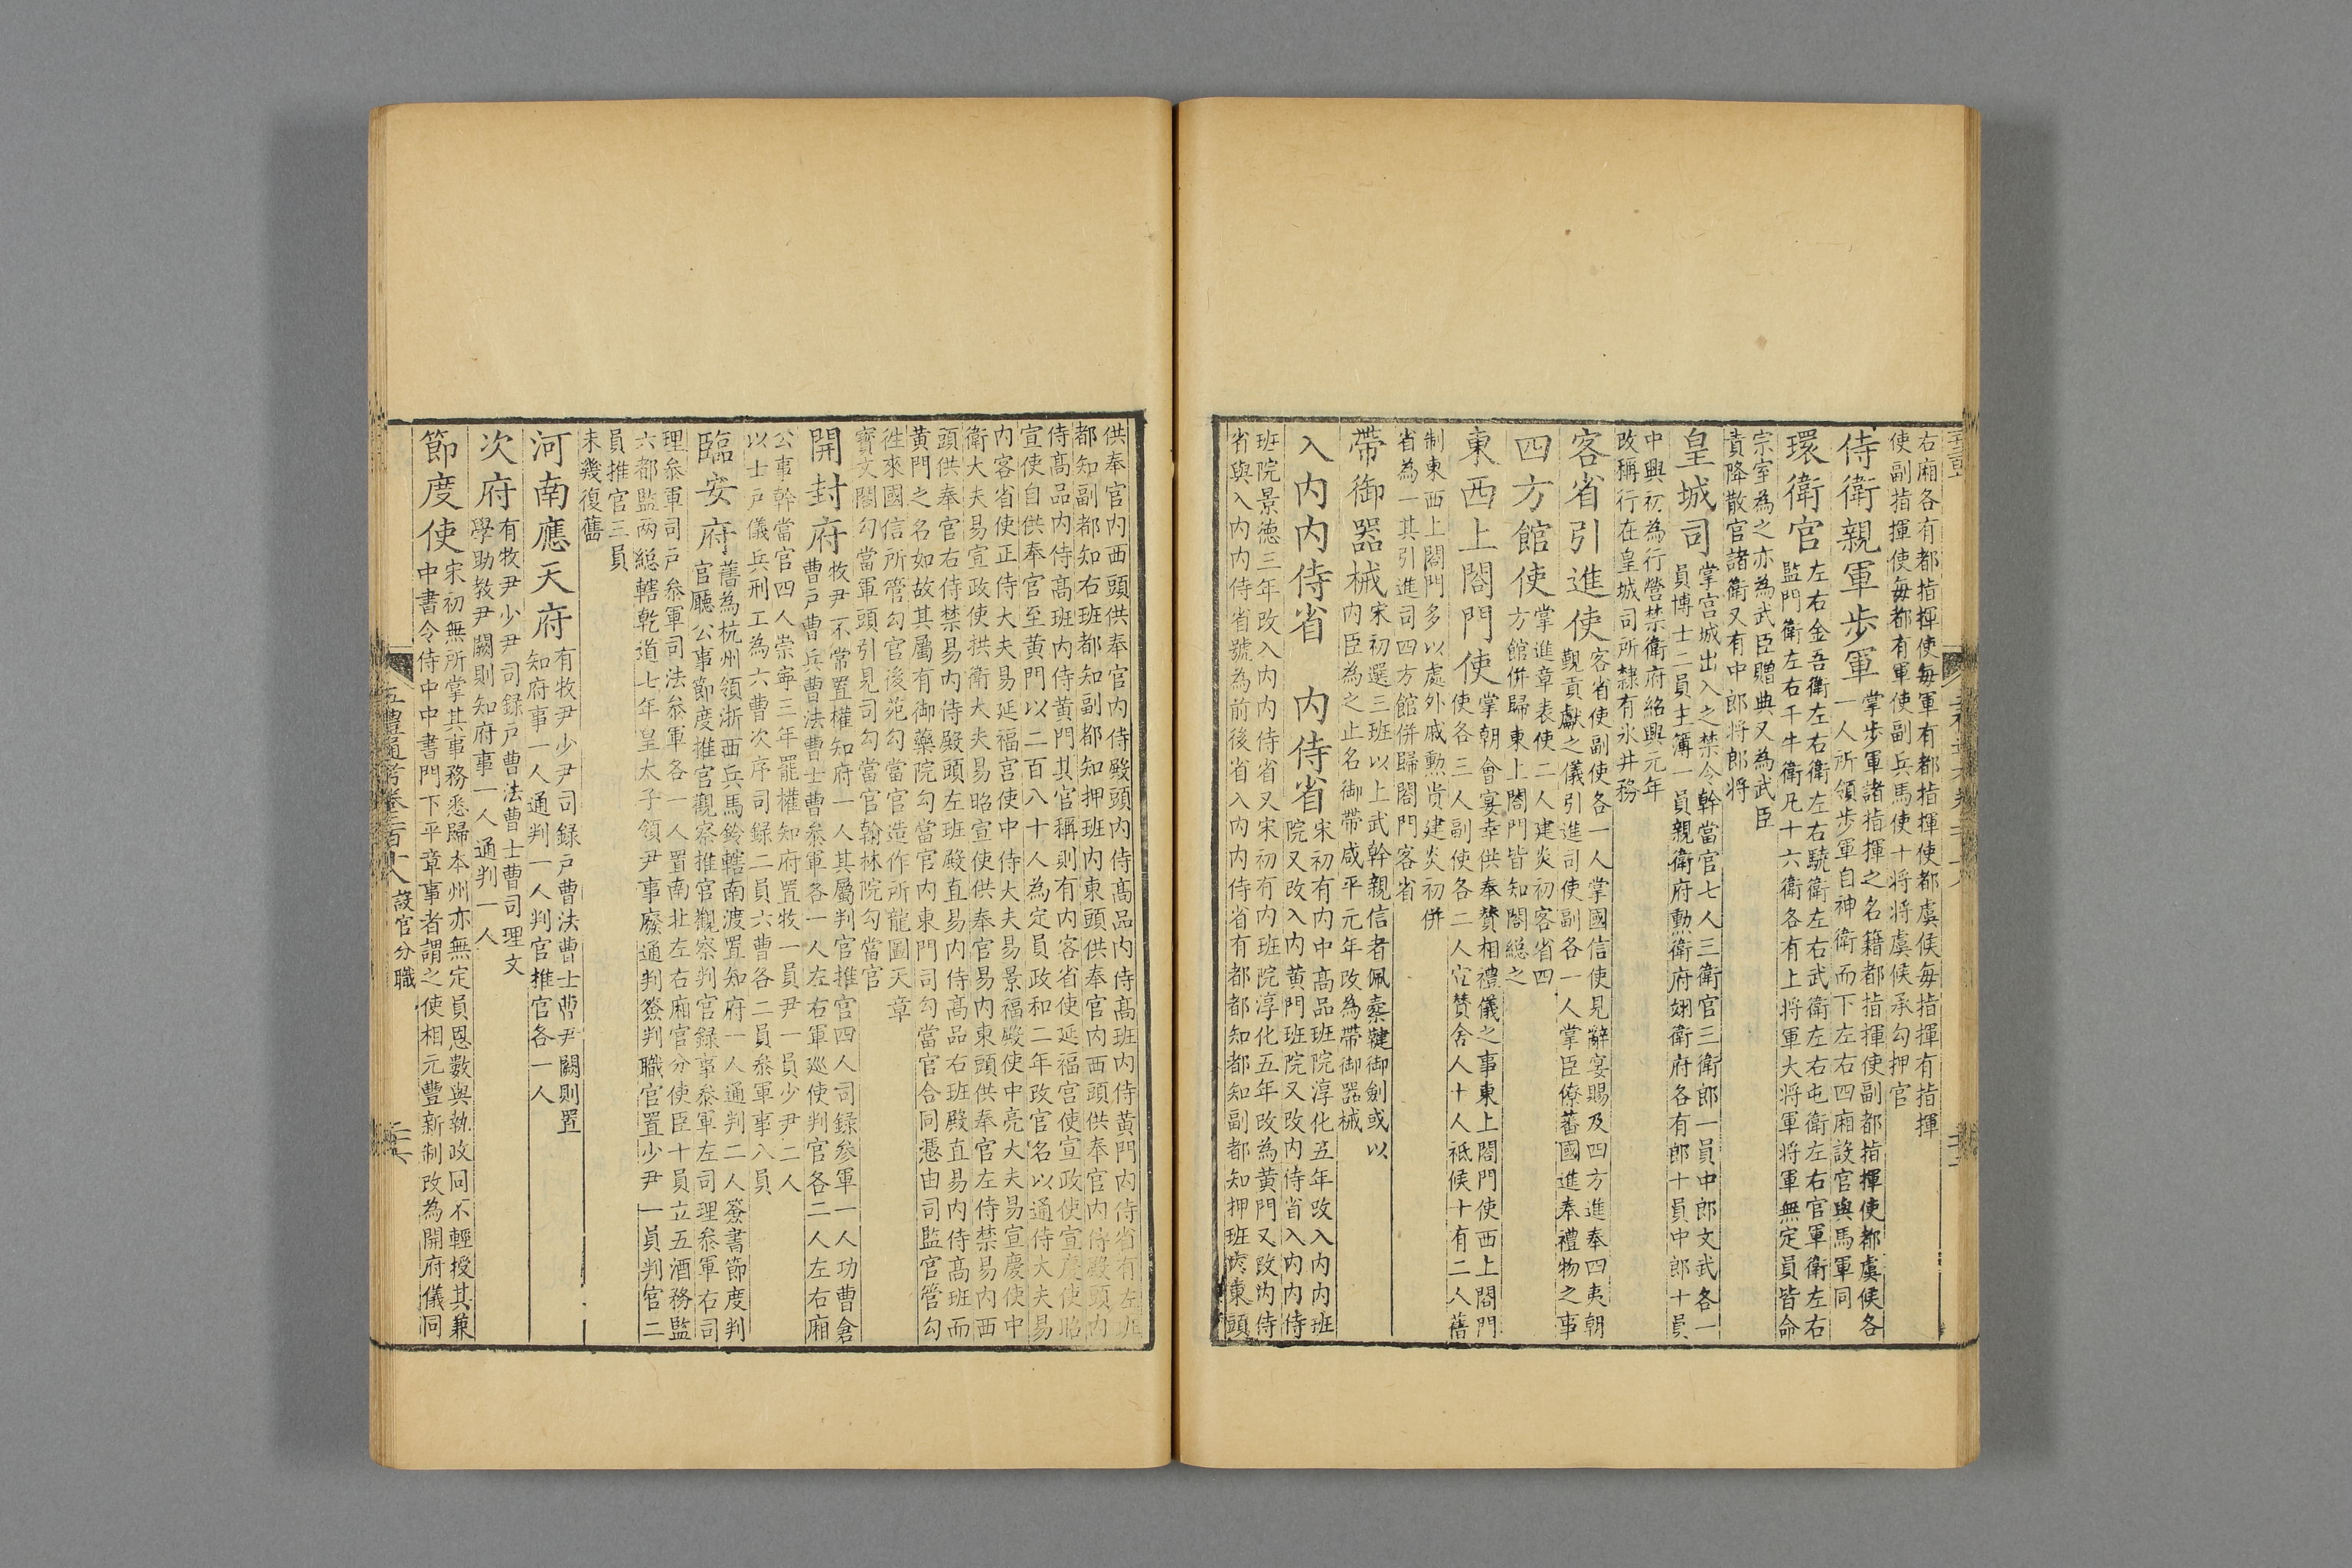 右廂各有都指揮使每軍有都指揮使都虞侯每指揮有指揮
使副指揮使每都有軍使副兵馬使十將將虞侯承勾押官
侍衛親軍步軍
掌步軍諸指揮之名籍都指揮使副都指揮使都虞候各
一人所領步軍自神衛而下左右四廂設官與馬軍同
環衛官
左右金吾衛左右衛左右驍衛左右武衛左右屯衛左右官軍衛左右
監門衛左右千牛衛凡十六衛各有上將軍大將軍將軍無定員皆命
宗室為之亦為武臣贈典又為武臣
責降散官諸衛又有中郎將郎將
皇城司
掌宮城出入之禁令幹當官七人三衛官三衛郎一員中郎文武各一
員博士二員主簿一員親衛府勳衛府翊衛府各有郎十員中郎十員
中興初為行營禁衛府紹興元年
改稱行在皇城司所隸有氷井務
客省引進使
客省使副使各一人掌國信使見辭宴賜及四方進奉四夷朝
覲貢獻之儀引進司使副各一人掌臣僚蕃國進奉禮物之事
四方館使
掌進章表使二人建炎初客省四
方館併歸東上閤門皆知閤總之
東西上閤門使
掌朝會宴幸供奉贊相禮儀之事東上閤門使西上閤門
使各三人副使各二人宣贊舍人十人祗候十有二人舊
制東西上閤門多以處外戚勳貴建炎初併
省為一其引進司四方館併歸閤門客省
帶御器械
宋初選三班以上武幹親信者佩櫜鞬御劍或以
內臣為之止名御帶咸平元年改為帶御器械
入内内侍省　内侍省
宋初有内中高品班院淳化五年改入内内班
院又改入内黄門班院又改内侍省入内内侍
班院景德三年改入内内侍省又宋初有内班院淳化五年改為黄門又改内侍
省與入内内侍省號為前後省入内内侍省有都都知都知副都知押班内東頭
供奉官内西頭供奉官内侍殿頭内侍高品内侍高班内侍黄門内侍省有左班
都知副都知右班都知副都知押班内東頭供奉官内西頭供奉官内侍殿頭内
侍高品内侍高班内侍黄門其官稱則有内客省使延福宫使宣政使宣慶使昭
宣使自供奉官至黄門以二百八十人為定員政和二年改官名以通侍大夫易
内客省使正侍大夫易延福宫使中侍大夫易景福殿使中亮大夫易宣慶使中
衛大夫易宣政使拱衛大夫易昭宣使供奉官易内東頭供奉官左侍禁易内西
頭供奉官右侍禁易内侍殿頭左班殿直易内侍高品右班殿直易内侍高班而
黄門之名如故其屬有御藥院勾當官内東門司勾當官合同憑由司監官管勾
徃來國信所管勾官後苑勾當官造作所龍圖天章
寳文閣勾當軍頭引見司勾當官翰林院勾當官
開封府
牧尹不常置權知府一人其屬判官推官四人司録參軍一人功曹倉
曹戸曹兵曹法曹士曹參軍各一人左右軍巡使判官各二人左右廂
公事幹當官四人崇寧三年罷權知府置牧一員尹一員少尹二人
以士戸儀兵刑工為六曹次序司録二員六曹各二員參軍事八員
臨安府
舊為杭州領浙西兵馬鈐轄南渡置知府一人通判二人簽書節度判
官廳公事節度推官觀察推官觀察判官録事參軍左司理參軍右司
理參軍司戸參軍司法參軍各一人置南北左右廂官分使臣十員立五酒務監
六都監兩總轄乾道七年皇太子領尹事廢通判簽判職官置少尹一員判官二
員推官三員
未幾復舊
河南應天府
有牧尹少尹司録戸曹法曹士曹尹闕則置
知府事一人通判一人判官推官各一人
次府
有牧尹少尹司録戸曹法曹士曹司理文
學助教尹闕則知府事一人通判一人
節度使
宋初無所掌其事務悉歸本州亦無定員恩數與執政同不輕授其兼
中書令侍中中書門下平章事者謂之使相元豐新制改為開府儀同
五禮通考卷二百十八　設官分職